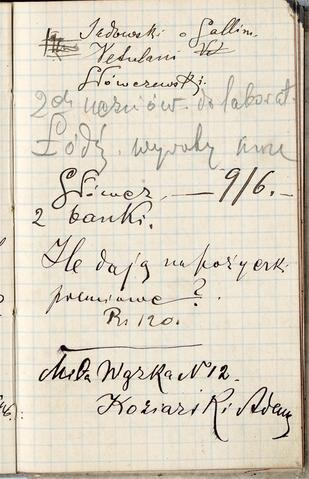 Jedowski o Gallim.
Vetulani
Główczewski.
2ch uczniów do laborat.
Łódź. wyroby
Główcz. — 9/6. —
2 banki.
Ile dają na pożyczk.
premiowe?
Rs 120.
Miła Wązka No 12.
Koziarski Adam